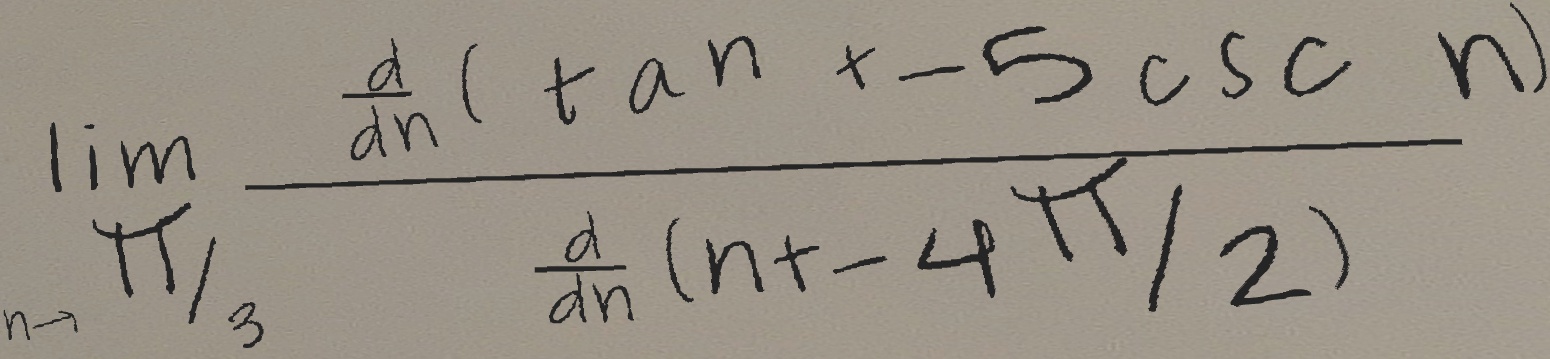 lim n→π/3 \frac{\frac{d}{dn}(tan x-5csc n)}{\frac{d}{dn}(n+-4π/2)}